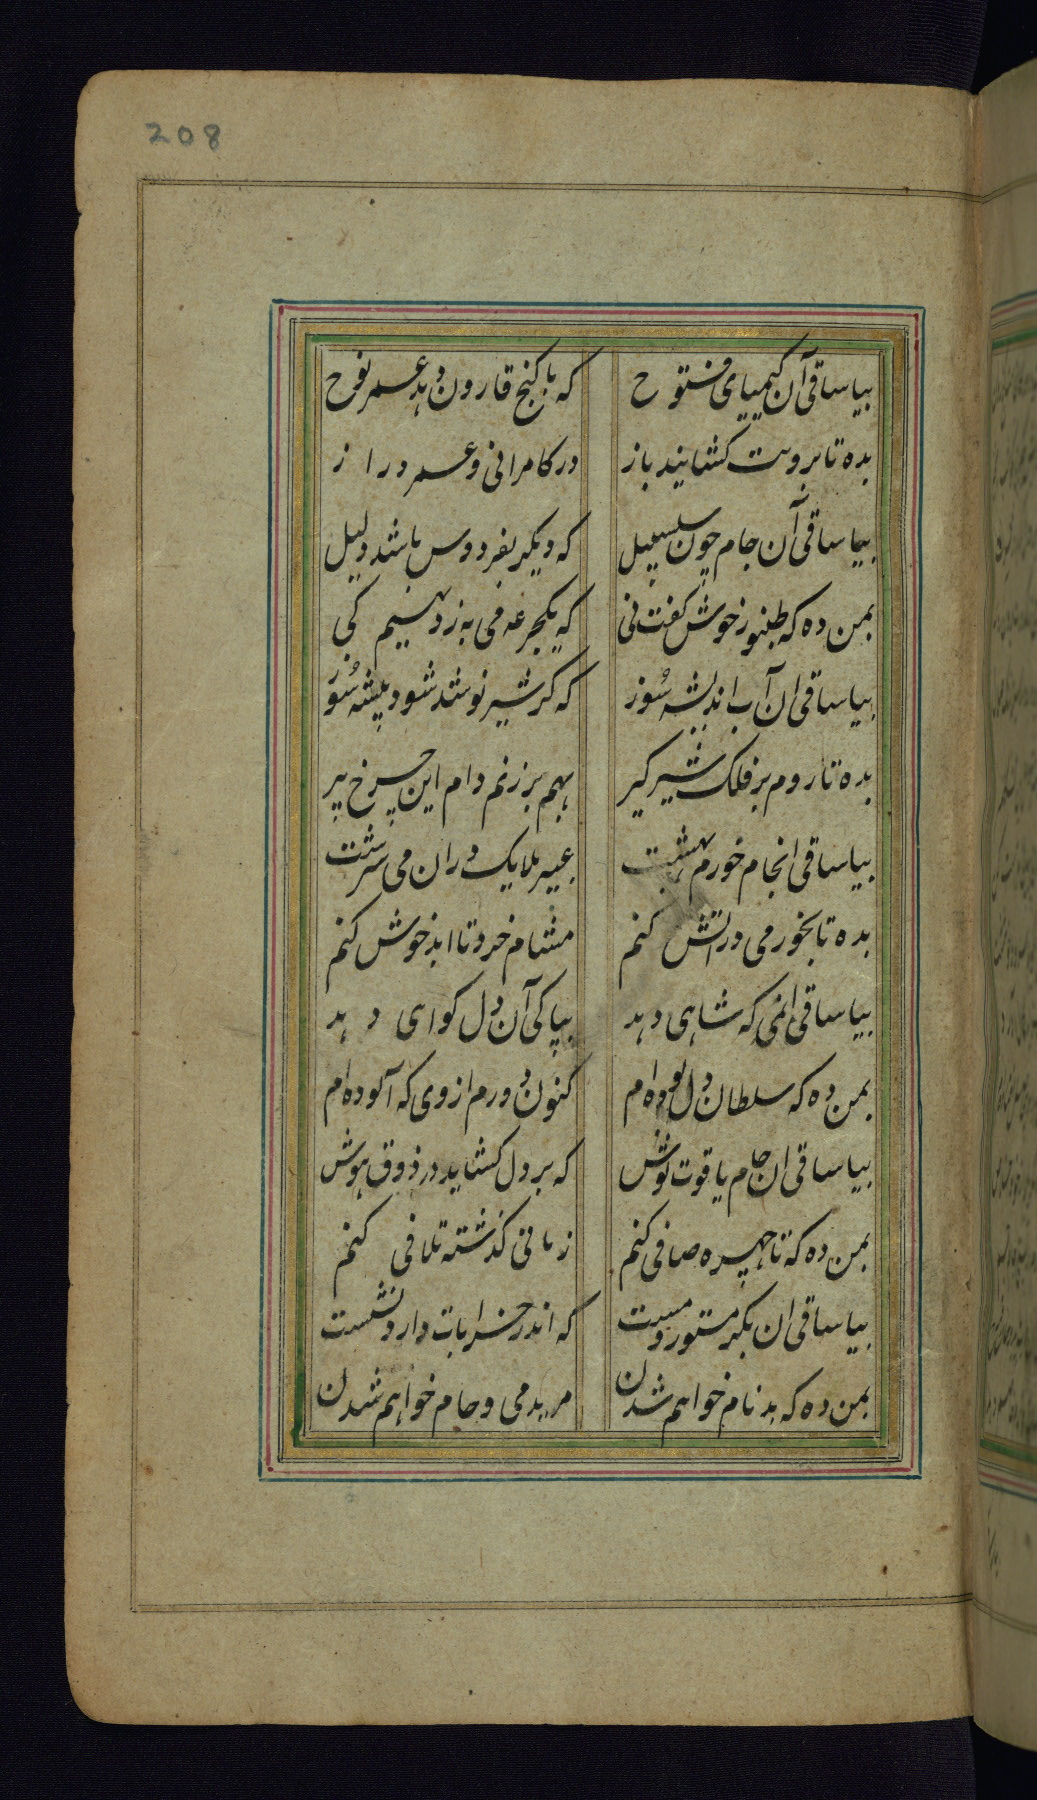 208
بیا ساقی آن کیمیای فتوح که با کنج قارون دهد عمر نوح
بده تا برویت کشایند باز در کامرانی و عمر دراز
بیا ساقی آن جام چون سلسبیل که دیکر بفردوس باشد دلیل
بمن ده که طنبور خوش کفت نی که یکجرعه می به ز دیهیم کی
بیا ساقی ان آب اندیشه سُوز که کر شیر نوشد شود بیشه سُوز
بده تا روم بر فلک شیر کیر بهم بر زنم دام این چرخ پیر
بیا ساقی انجام خورم بهشت عبیر ملایک دران می سرشت
بده تا بخور می در اتش کنم مشام خرد تا ابد خوش کنم
بیا ساقی انمی که شاهی دهد بپاکی آن دل کواهی دهد
بمن ده که سلطان دل بوده ام کنون دورم از وی که آلوده ام
بیا ساقی ان جام یاقوت نوش که بر دل کشاید در ذوق هوش
بمن ده که تا چهره صافی کنم زمانی کذشته تلافی کنم
بیا ساقی ان بکر مستور مست که اندر خرابات دارد نشست
بمن ده که بد نام خواهم شدن مرید می و جام خواهم شدن